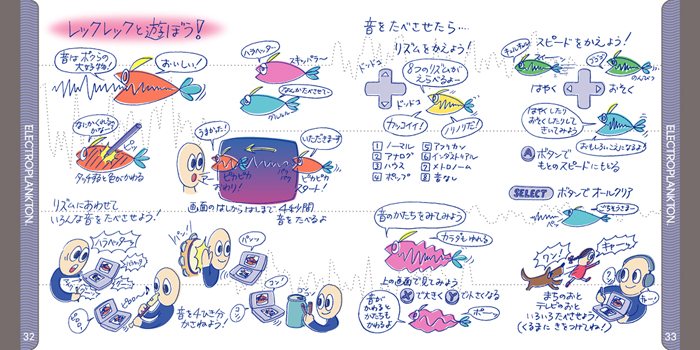 レックレックと遊ぼう!
音はボクらの
大好物!
おいしい!
ハラヘッター
スキッパラ〜
なんかたべさせて〜
グルルル
なにかくれるの
かな〜?
ピッ
タッチすると色がかわる
うまかった!
いただきまーす
アー
ピカピカ
おわり!
パク
パク
ピカピカ
スタート!
画面のはしからはしまで 4秒間
音をたべるよ
リズムにあわせて
いろんな音をたべさせよう!
ハラヘッター
パン!
パンッ
ピロロー
コン!
コンッ
音を4ひき分
かさねよう!
ELECTROPLANKTON.
32
音をたべさせたら…
リズムをかえよう!
ドッドコ
ドッドコ
8つのリズムが
えらべるよ〜
カッコイイ!
ノリノリだ!
1 ノーマル
2 アナログ
3 ハウス
4 ポップ
5 アフリカン
6 インダストリアル
7 メトロノーム
8 音なし
音のかたちをみてみよう
カラダもゆれる
上の画面で見てみよう
Xで大きく Yで小さくなる
音が
かわると
かたちも
かわるよ
ポー
スピードをかえよう!
キュルキュル
のんびり
はやく
おそく
はやくしたり
おそくしたりして
きいてみよう
おもしろいこえになるよ!
Aボタンで
もとのスピードにもどる
SELECT ボタンでオールクリア
ペッ
ごちそうさまー
ワン!
キャー
まちのおと
テレビのおと
いろいろたべさせよう
(くるまに きをつけてね!)
ELECTROPLANKTON.
33